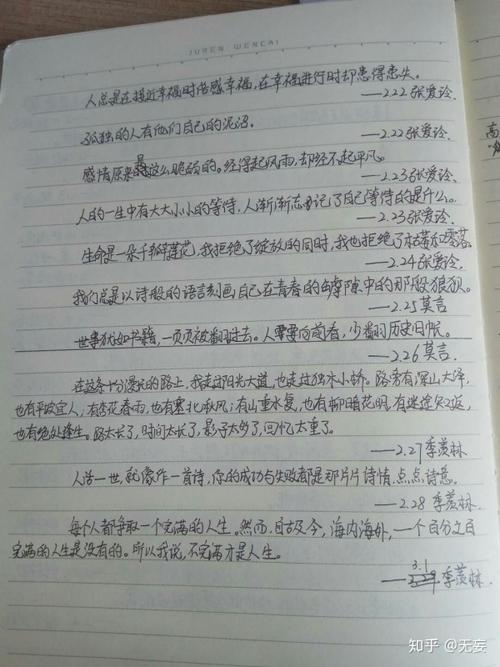 JUREN WENCAI
人总是在接近幸福时倍感幸福,在幸福进行时却患得患失。
——2.22张爱玲
孤独的人有他们自己的泥沼。
——2.22张爱玲.
感情原来是这么脆弱的。经得起风雨,却经不起平凡。
——2.23张爱玲.
人的一生中有大大小小的等待,人渐渐忘记了自己等待的是什么。
——2.23张爱玲.
生命是一朵千瓣莲花,我拒绝了绽放的同时,我也拒绝了枯萎和零落.
——2.24张爱玲.
我们总是以诗般的语言刻画自己在青春的罅隙中的那段狼狈.
——2.25莫言
世事犹如书籍,一页页被翻过去。人要向前看,少翻历史旧帐。
——2.26莫言.
在这条十分漫长的路上,我走过阳光大道,也走过独木小桥。路旁有深山大泽,
也有平坡宜人;有杏花春雨,也有塞北秋风;有山重水复,也有柳暗花明,有迷途知返,
也有绝处逢生。路太长了,时间太长了,影子太多了,回忆太重了。
——2.27季羡林
人活一世,就像作一首诗,你的成功与失败都是那片片诗情,点点诗意.
——2.28 季羡林.
每个人都争取一个完满的人生。然而,自古及今,海内海外,一个百分之百
完满的人生是没有的。所以我说,不完满才是人生。
——3.1季羡林.
高
知乎 @无妄